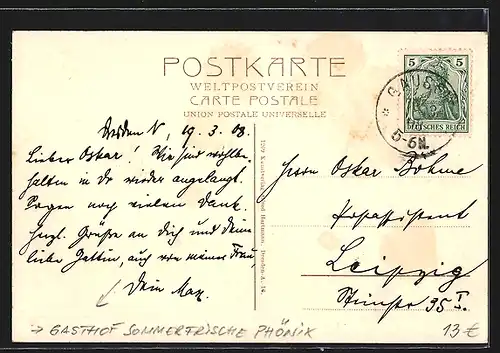 POSTKARTE
WELTPOSTVEREIN
CARTE POSTALE
UNION POSTALE UNIVERSELLE
5 5
DEUTSCHES REICH
GAUS
5-6N.
Dresden N, 19.3.08.
Lieber Oskar! Wir sind wohlbe-
halten in Dr wieder angelangt.
Sagen noch vielen Dank.
Herzl. Grüße an Dich und Deine
liebe Gattin, auch von meiner Frau
Dein Max.
Herrn Oskar Böhme
Postassistent
Leipzig
Steinstr 35 I.
→ GASTHOF SOMMERFRISCHE PHÖNIX
13€